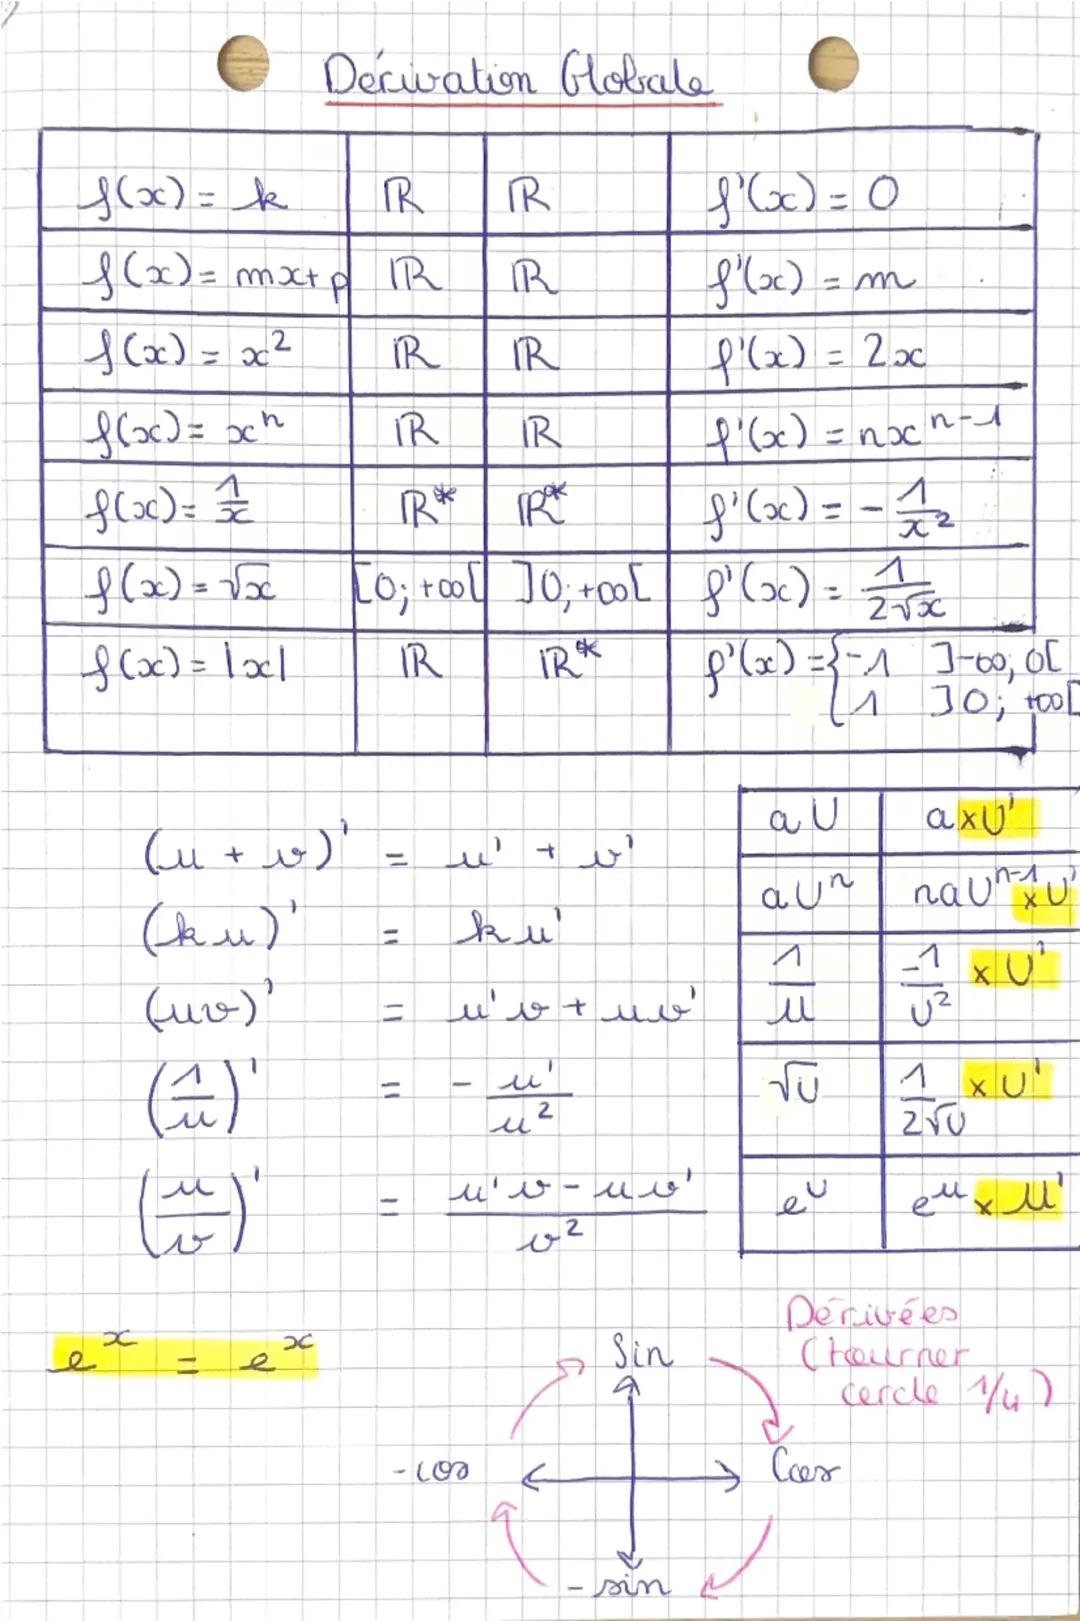 Dérivation Globale
f(x) = k ℝ ℝ f'(x) = 0
f(x) = mx+p ℝ ℝ f'(x) = m
f(x) = x² ℝ ℝ f'(x) = 2x
f(x) = xⁿ ℝ ℝ f'(x) = nxⁿ⁻¹
f(x) = 1/x ℝ* ℝ* f'(x) = - 1/x²
f(x) = √x [0; +∞[ ]0; +∞[ f'(x) = 1/(2√x)
f(x) = |x| ℝ ℝ* f'(x) = { -1 ]-∞; 0[
1 ]0; +∞[
(u + v)' = u' + v'
(ku)' = ku'
(uv)' = u'v + uv'
(1/u)' = - u'/u²
(u/v)' = (u'v - uv')/v²
aU a×U'
aUⁿ naUⁿ⁻¹ ×U'
1/u -1/U² ×U'
√U 1/(2√U) ×U'
e^U e^u × u'
e^x = e^x
Dérivées
(tourner
cercle 1/4)
Sin
-cos Cos
- sin